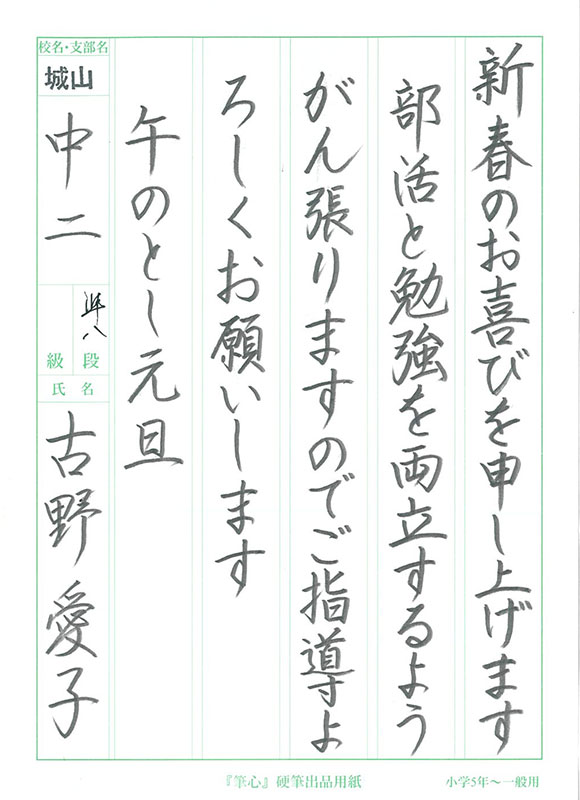 新春のお喜びを申し上げます
部活と勉強を両立するよう
がん張りますのでご指導よ
ろしくお願いします
午のとし元旦
校名・支部名
城山
中二
準八
段
級
氏名
古野愛子
『筆心』硬筆出品用紙
小学5年～一般用